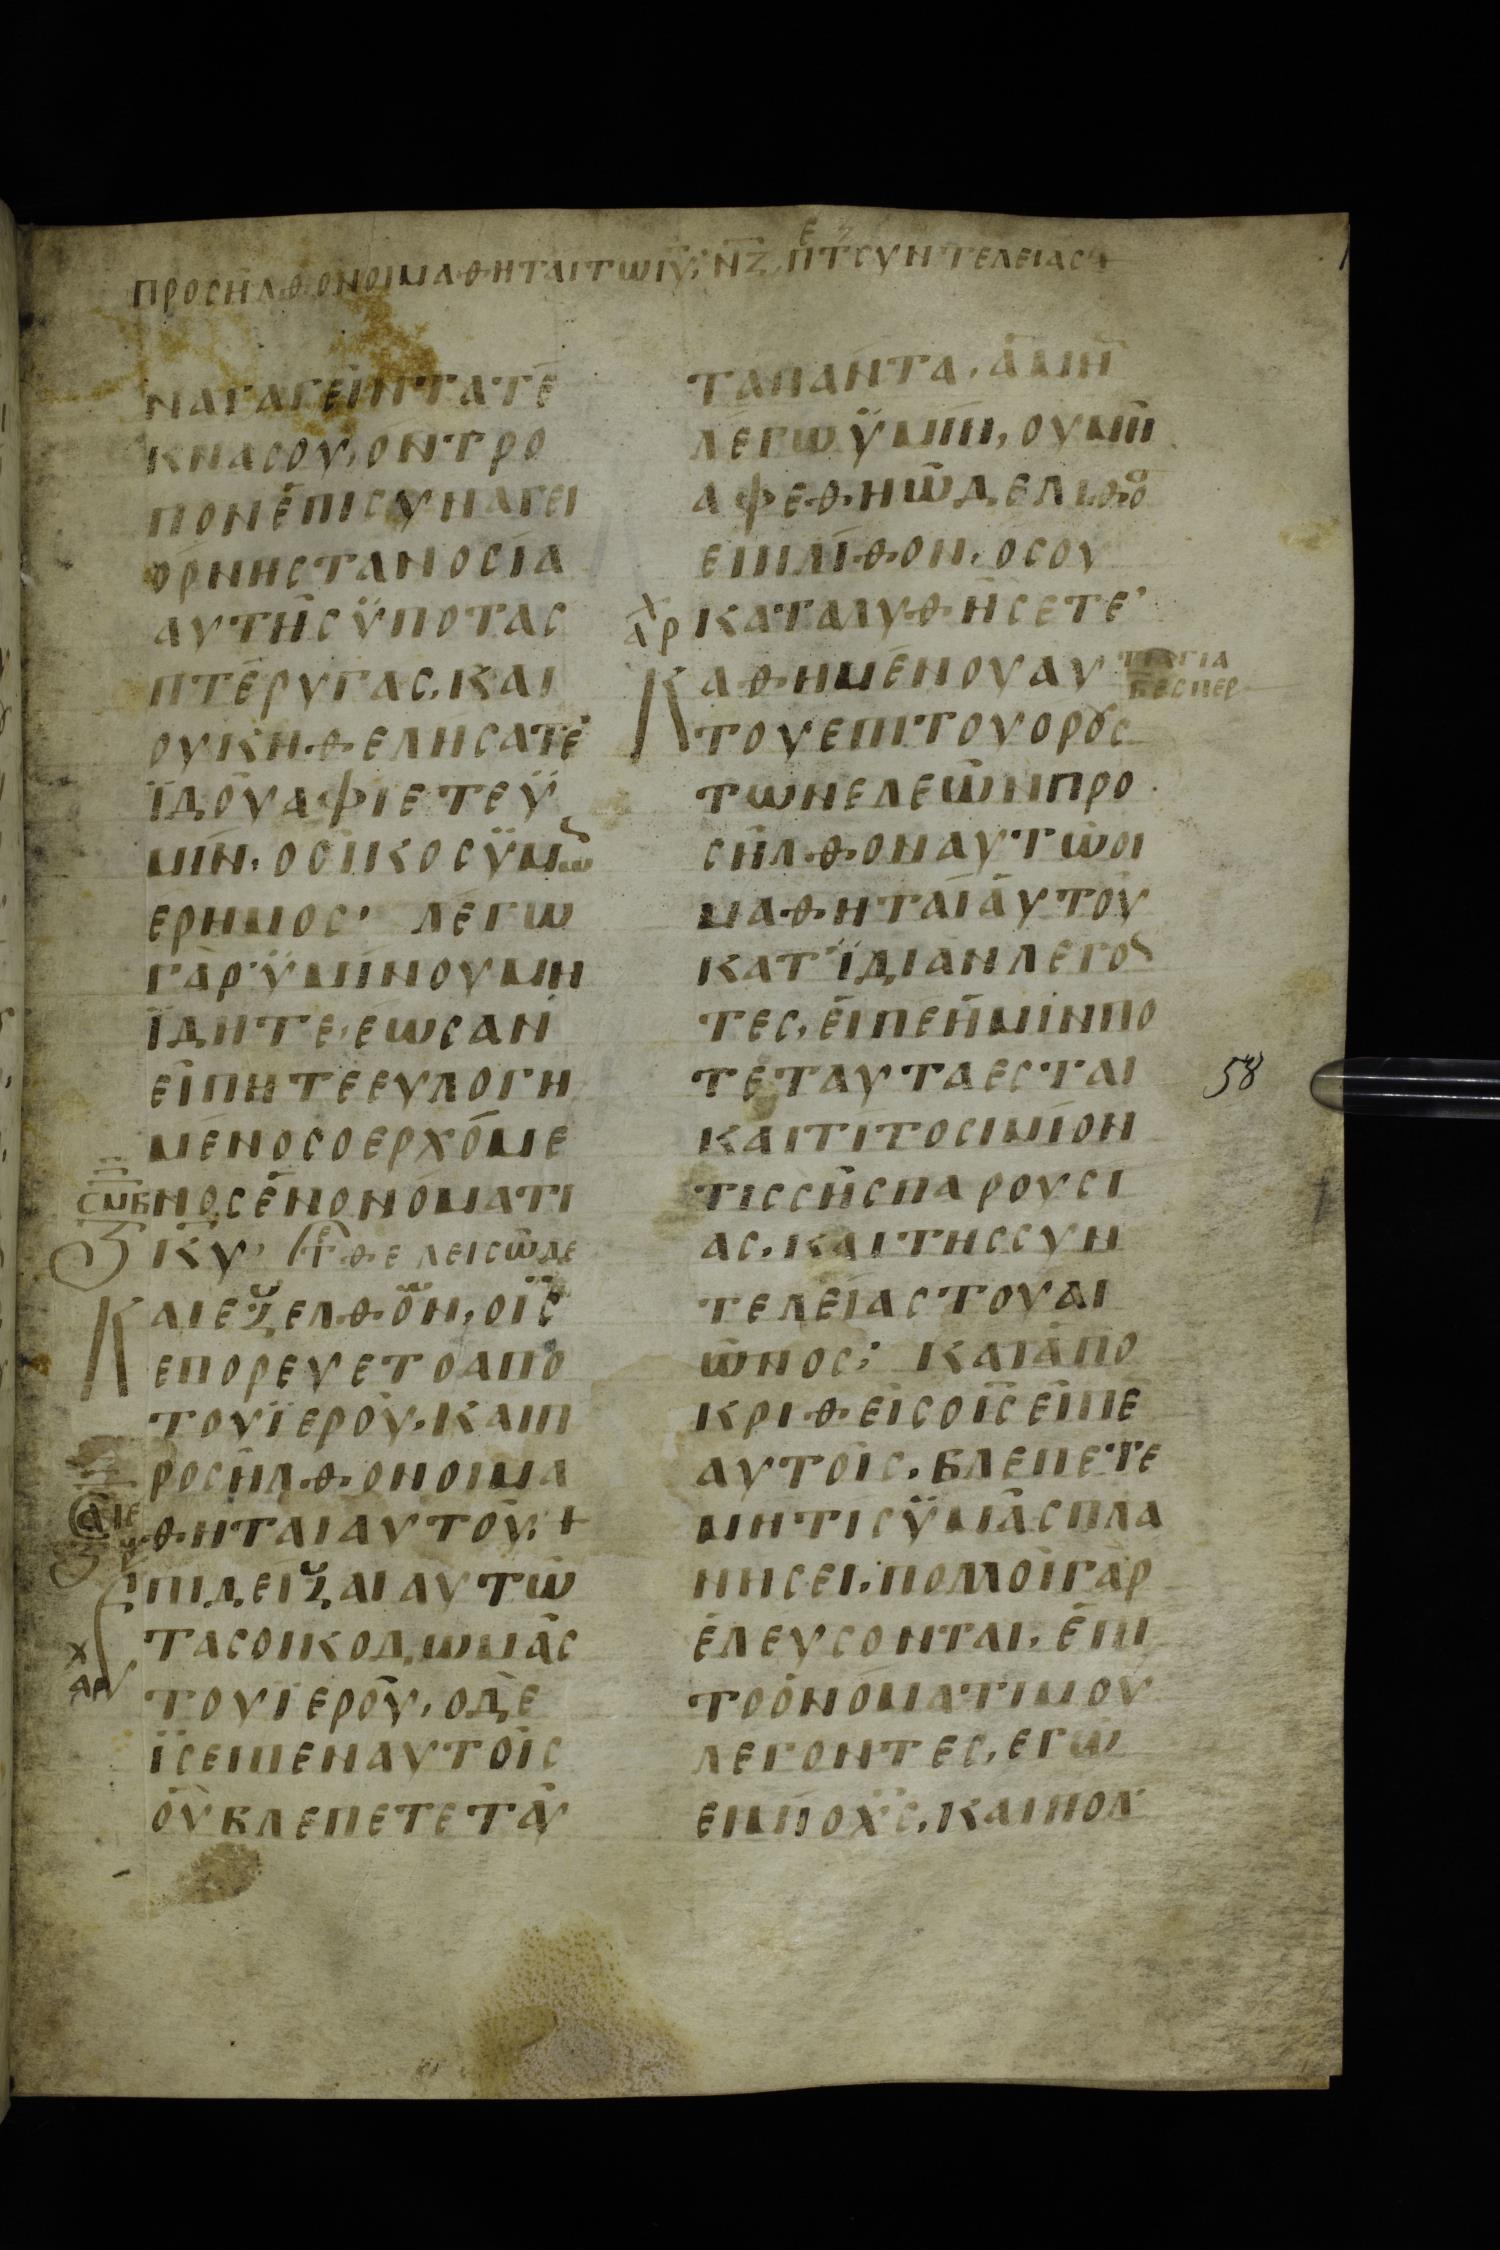 ΠΡΟΣΗΛΘΟΝΟΙΜΑΘΗΤΑΙΤΩΙΥ· ΝΖ ΠΤΣΥΝΤΕΛΕΙΑΣ
ΝΑΓΑΓΕΙΝΤΑΤΕ
ΚΝΑΣΟΥ, ΟΝΤΡΟ
ΠΟΝΕΠΙΣΥΝΑΓΕΙ
ΟΡΝΗΣΤΑΝΟΣΙΑ
ΑΥΤΗΣΫΠΟΤΑΣ
ΠΤΕΡΥΓΑΣ, ΚΑΙ
ΟΥΚΗΘΕΛΗΣΑΤΕ
ΪΔΟΥΑΦΙΕΤΕΫ
ΜΙΝ, ΟΟΙΚΟΣΫΜΩ
ΕΡΗΜΟΣ· ΛΕΓΩ
ΓΑΡΫΜΙΝΟΥΜΗ
ΪΔΗΤΕ, ΕΩΣΑΝ
ΕΙΠΗΤΕΕΥΛΟΓΗ
ΜΕΝΟΣΟΕΡΧΟΜΕ
ΣΜΒ ΝΟΣΕΝΟΝΟΜΑΤΙ
ΚΥ· ΘΕΛΕΙΣΩΔΕ
ΚΑΙΕΞΕΛΘΟΝ, ΟΙΣ
ΕΠΟΡΕΥΕΤΟΑΠΟ
ΤΟΥΪΕΡΟΥ, ΚΑΙΠ
ΡΟΣΗΛΘΟΝΟΙΜΑ
ΘΗΤΑΙΑΥΤΟΥ· +
ΕΠΙΔΕΙΞΑΙΑΥΤΩ
ΤΑΣΟΙΚΟΔΩΜΑΣ
ΤΟΥΪΕΡΟΥ, ΟΔΕ
ΪΣΕΙΠΕΝΑΥΤΟΙΣ
ΟΥΒΛΕΠΕΤΕΤΑΥ
ΤΑΠΑΝΤΑ, ΑΜΗ
ΛΕΓΩΫΜΙΝ, ΟΥΜΗ
ΑΦΕΘΗΩΔΕΛΙΘΟ
ΕΠΙΛΙΘΟΝ, ΟΣΟΥ
ΑΡΧ ΚΑΤΑΛΥΘΗΣΕΤΕ·
ΚΑΘΗΜΕΝΟΥΑΥ
ΤΟΥΕΠΙΤΟΥΟΡΟΥΣ
ΤΩΝΕΛΕΩΝΠΡΟ
ΣΗΛΘΟΝΑΥΤΩΟΙ
ΜΑΘΗΤΑΙΑΥΤΟΥ
ΚΑΤΪΔΙΑΝΛΕΓΟ
ΤΕΣ, ΕΙΠΕΗΜΙΝΠΟ
ΤΕΤΑΥΤΑΕΣΤΑΙ
58
ΚΑΙΤΙΤΟΣΙΜΙΟΝ
ΤΙΣΣΗΣΠΑΡΟΥΣΙ
ΑΣ, ΚΑΙΤΗΣΣΥΝ
ΤΕΛΕΙΑΣΤΟΥΑΙ
ΩΝΟΣ; ΚΑΙΑΠΟ
ΚΡΙΘΕΙΣΟΙΣΕΙΠΕ
ΑΥΤΟΙΣ, ΒΛΕΠΕΤΕ
ΜΗΤΙΣΫΜΑΣΠΛΑ
ΝΗΣΕΙ, ΠΟΛΛΟΙΓΑΡ
ΕΛΕΥΣΟΝΤΑΙ, ΕΠΙ
ΤΟΟΝΟΜΑΤΙΜΟΥ
ΛΕΓΟΝΤΕΣ, ΕΓΩ
ΕΙΜΙΟΧΣ, ΚΑΙΠΟΛ